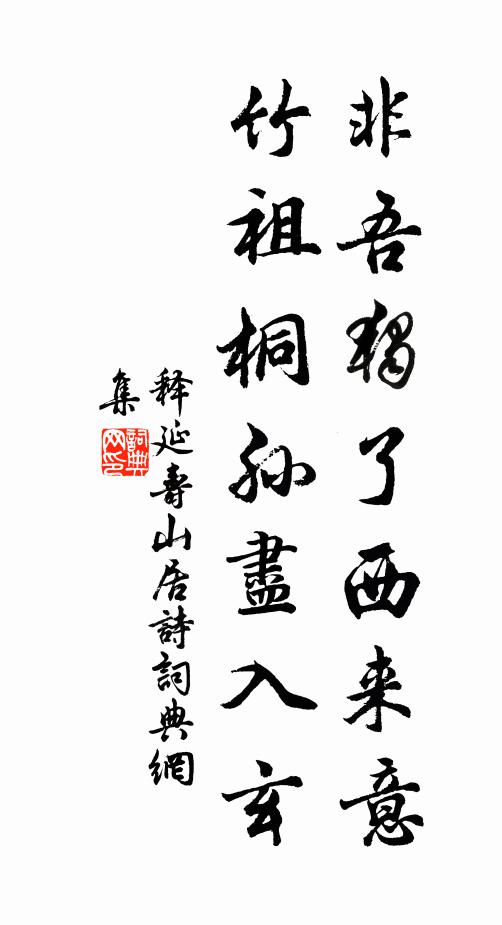 非吾獨了西来意
竹祖桐孙盡入玄
释延壽山居詩詞典網
集
詞典
网印